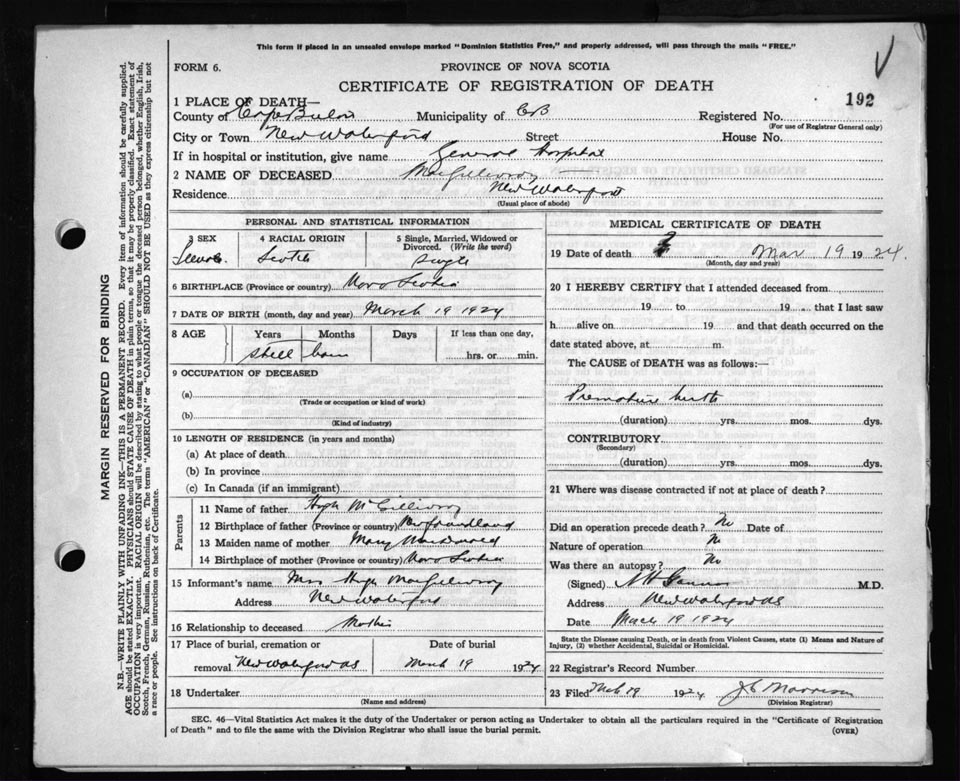 This form if placed in an unsealed envelope marked "Dominion Statistics Free," and properly addressed, will pass through the mails "FREE."
FORM 6.
PROVINCE OF NOVA SCOTIA
CERTIFICATE OF REGISTRATION OF DEATH
192
1 PLACE OF DEATH—
County of Cape Breton Municipality of CB Registered No.
(For use of Registrar General only)
City or Town New Waterford Street House No.
If in hospital or institution, give name General Hospital
2 NAME OF DECEASED MacGillivray
Residence New Waterford
(Usual place of abode)
PERSONAL AND STATISTICAL INFORMATION
3 SEX 4 RACIAL ORIGIN 5 Single, Married, Widowed or Divorced. (Write the word)
Scotch Single
6 BIRTHPLACE (Province or country) Nova Scotia
7 DATE OF BIRTH (month, day and year) March 19 1924
8 AGE Years Months Days If less than one day,
Still born hrs. or min.
9 OCCUPATION OF DECEASED
(a)
(Trade or occupation or kind of work)
(b)
(Kind of industry)
10 LENGTH OF RESIDENCE (in years and months)
(a) At place of death
(b) In province
(c) In Canada (if an immigrant)
Parents
11 Name of father Hugh McGillivray
12 Birthplace of father (Province or country) Newfoundland
13 Maiden name of mother Mary MacDonald
14 Birthplace of mother (Province or country) Nova Scotia
15 Informant's name Mrs Hugh MacGillivray
Address New Waterford
16 Relationship to deceased Mother
17 Place of burial, cremation or removal New Waterford NS
Date of burial March 19 1924
18 Undertaker
(Name and address)
MEDICAL CERTIFICATE OF DEATH
19 Date of death Mar 19 1924.
(Month, day and year)
20 I HEREBY CERTIFY that I attended deceased from
19 to 19 that I last saw
h alive on 19 and that death occurred on the
date stated above, at m.
The CAUSE of DEATH was as follows:—
Premature birth
(duration) yrs. mos. dys.
CONTRIBUTORY
(Secondary)
(duration) yrs. mos. dys.
21 Where was disease contracted if not at place of death?
Did an operation precede death? No Date of
Nature of operation N
Was there an autopsy? No
(Signed) M.D.
Address New Waterford NS
Date March 19 1924
State the Disease causing Death, or in death from Violent Causes, state (1) Means and Nature of Injury, (2) whether Accidental, Suicidal or Homicidal.
22 Registrar's Record Number
23 Filed Mch 19 1924 J C Morrison
(Division Registrar)
SEC. 46—Vital Statistics Act makes it the duty of the Undertaker or person acting as Undertaker to obtain all the particulars required in the "Certificate of Registration
of Death" and to file the same with the Division Registrar who shall issue the burial permit.
(OVER)
MARGIN RESERVED FOR BINDING
N.B.—WRITE PLAINLY WITH UNFADING INK—THIS IS A PERMANENT RECORD. Every item of information should be carefully supplied.
AGE should be stated EXACTLY. PHYSICIANS should STATE CAUSE OF DEATH in plain terms, so that it may be properly classified. Exact statement of
OCCUPATION is very important. RACIAL ORIGIN will be described by stating to what people or tongue the deceased person belonged, whether English, Irish,
Scotch, French, German, Russian, Ruthenian, etc. The terms "AMERICAN" or "CANADIAN" SHOULD NOT BE USED as they express citizenship but not
a race or people. See instructions on back of Certificate.